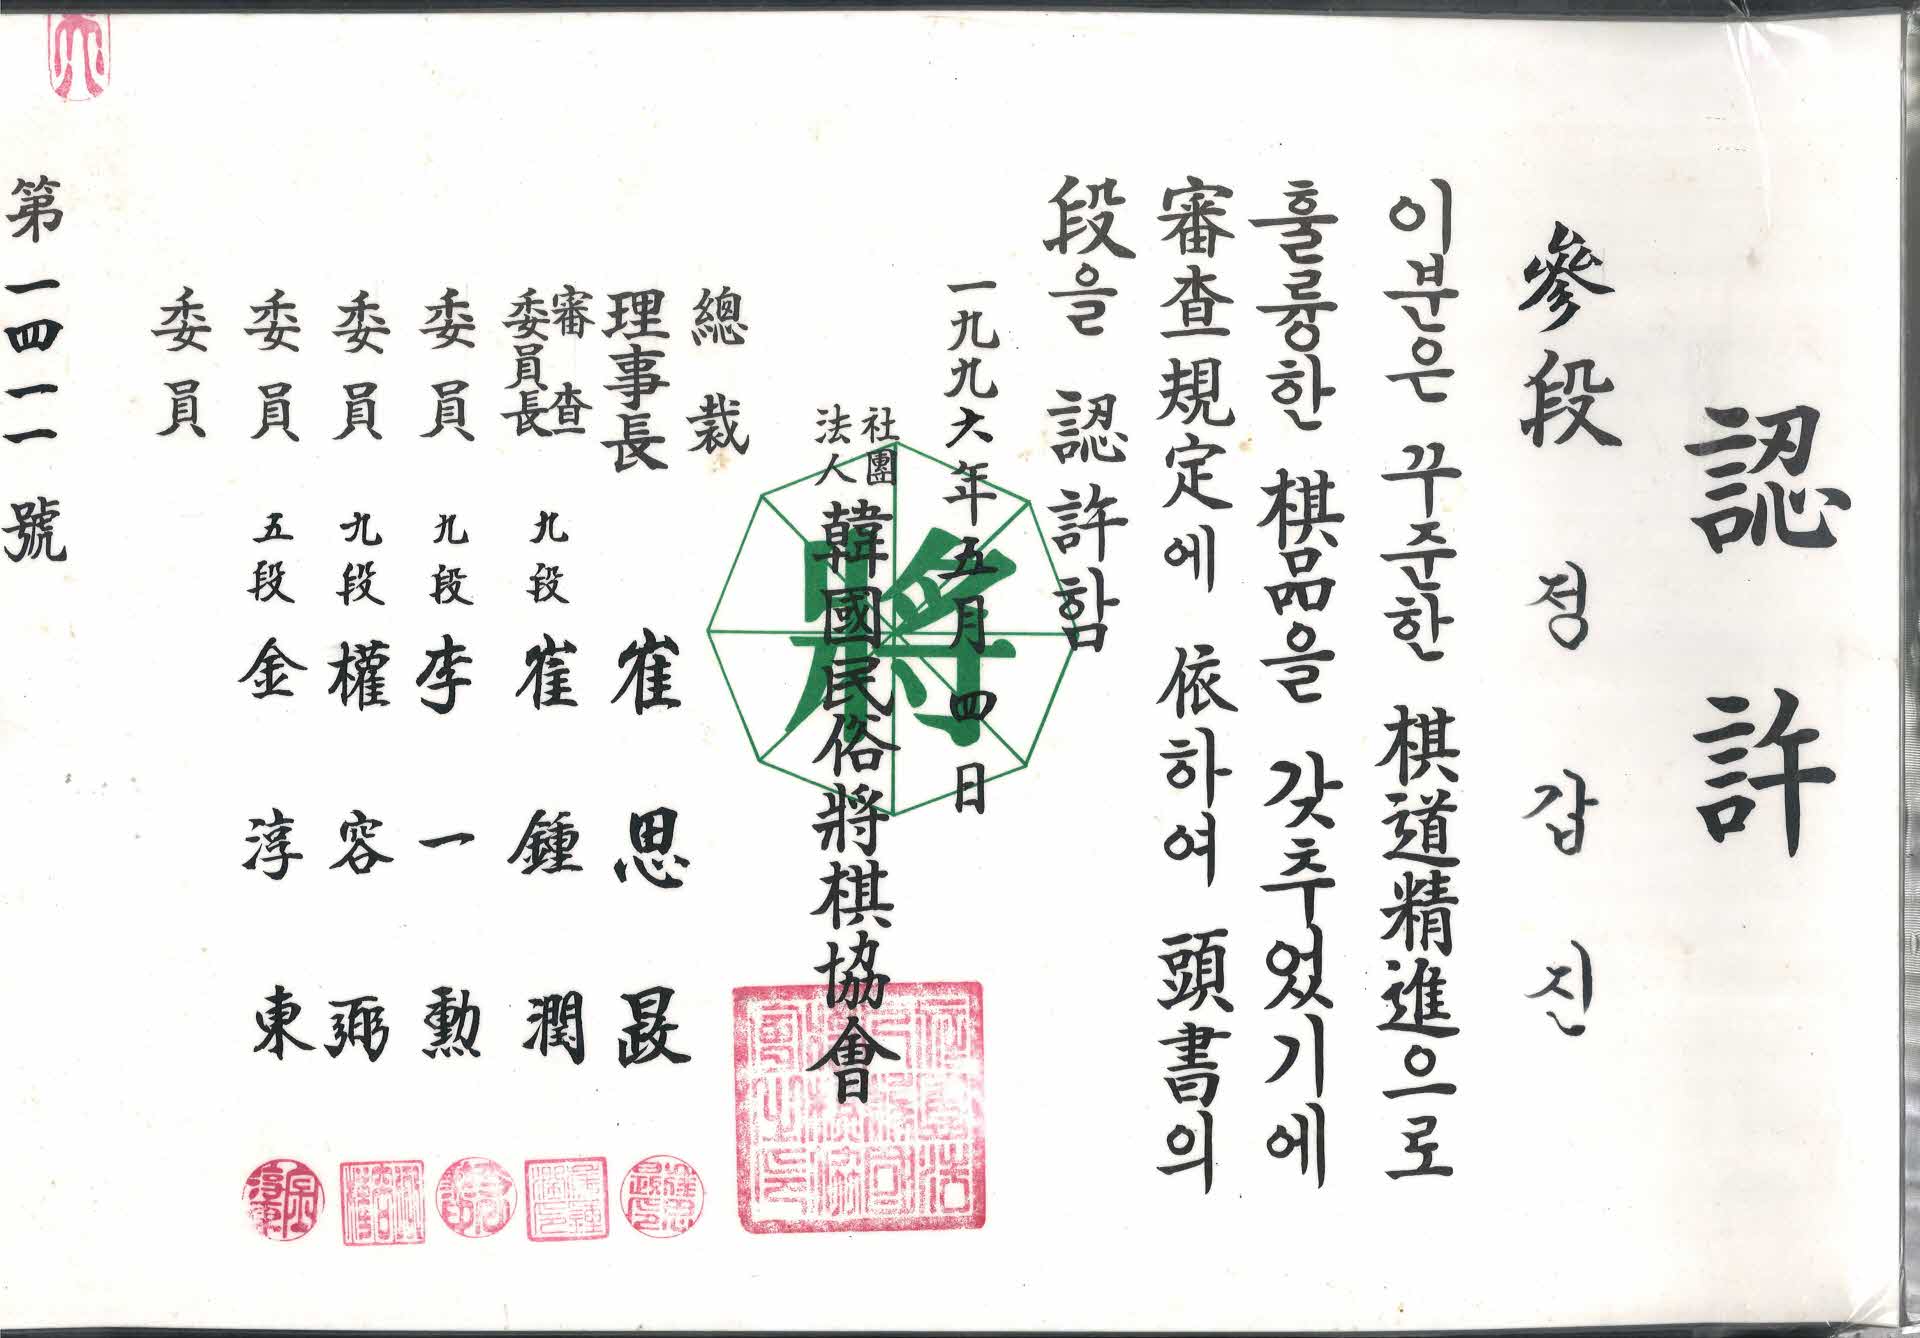 認許
參段 정갑진
이분은 꾸준한 棋道精進으로
훌륭한 棋品을 갖추었기에
審査規定에 依하여 頭書의
段을 認許함
一九九六年五月四日
社團法人 韓國民俗將棋協會
將
總裁
理事長 崔思晸
審査委員長 九段 崔鍾潤
委員 九段 李一勳
委員 九段 權容弼
委員 五段 金淳東
委員
第一四一一號